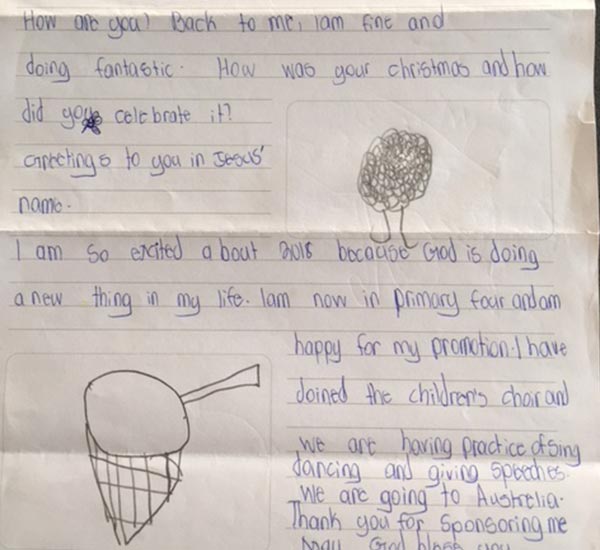 How are you? Back to me, Iam fine and
doing fantastic. How was your christmas and how
did you celebrate it?
Greetings to you in Jesus'
name.
I am so excited about 2018 because God is doing
a new thing in my life. Iam now in primary four and am
happy for my promotion. I have
Joined the children's choir and
we are having practice of sing
dancing and giving speeches.
We are going to Australia.
Thank you for sponsoring me
May God bless you